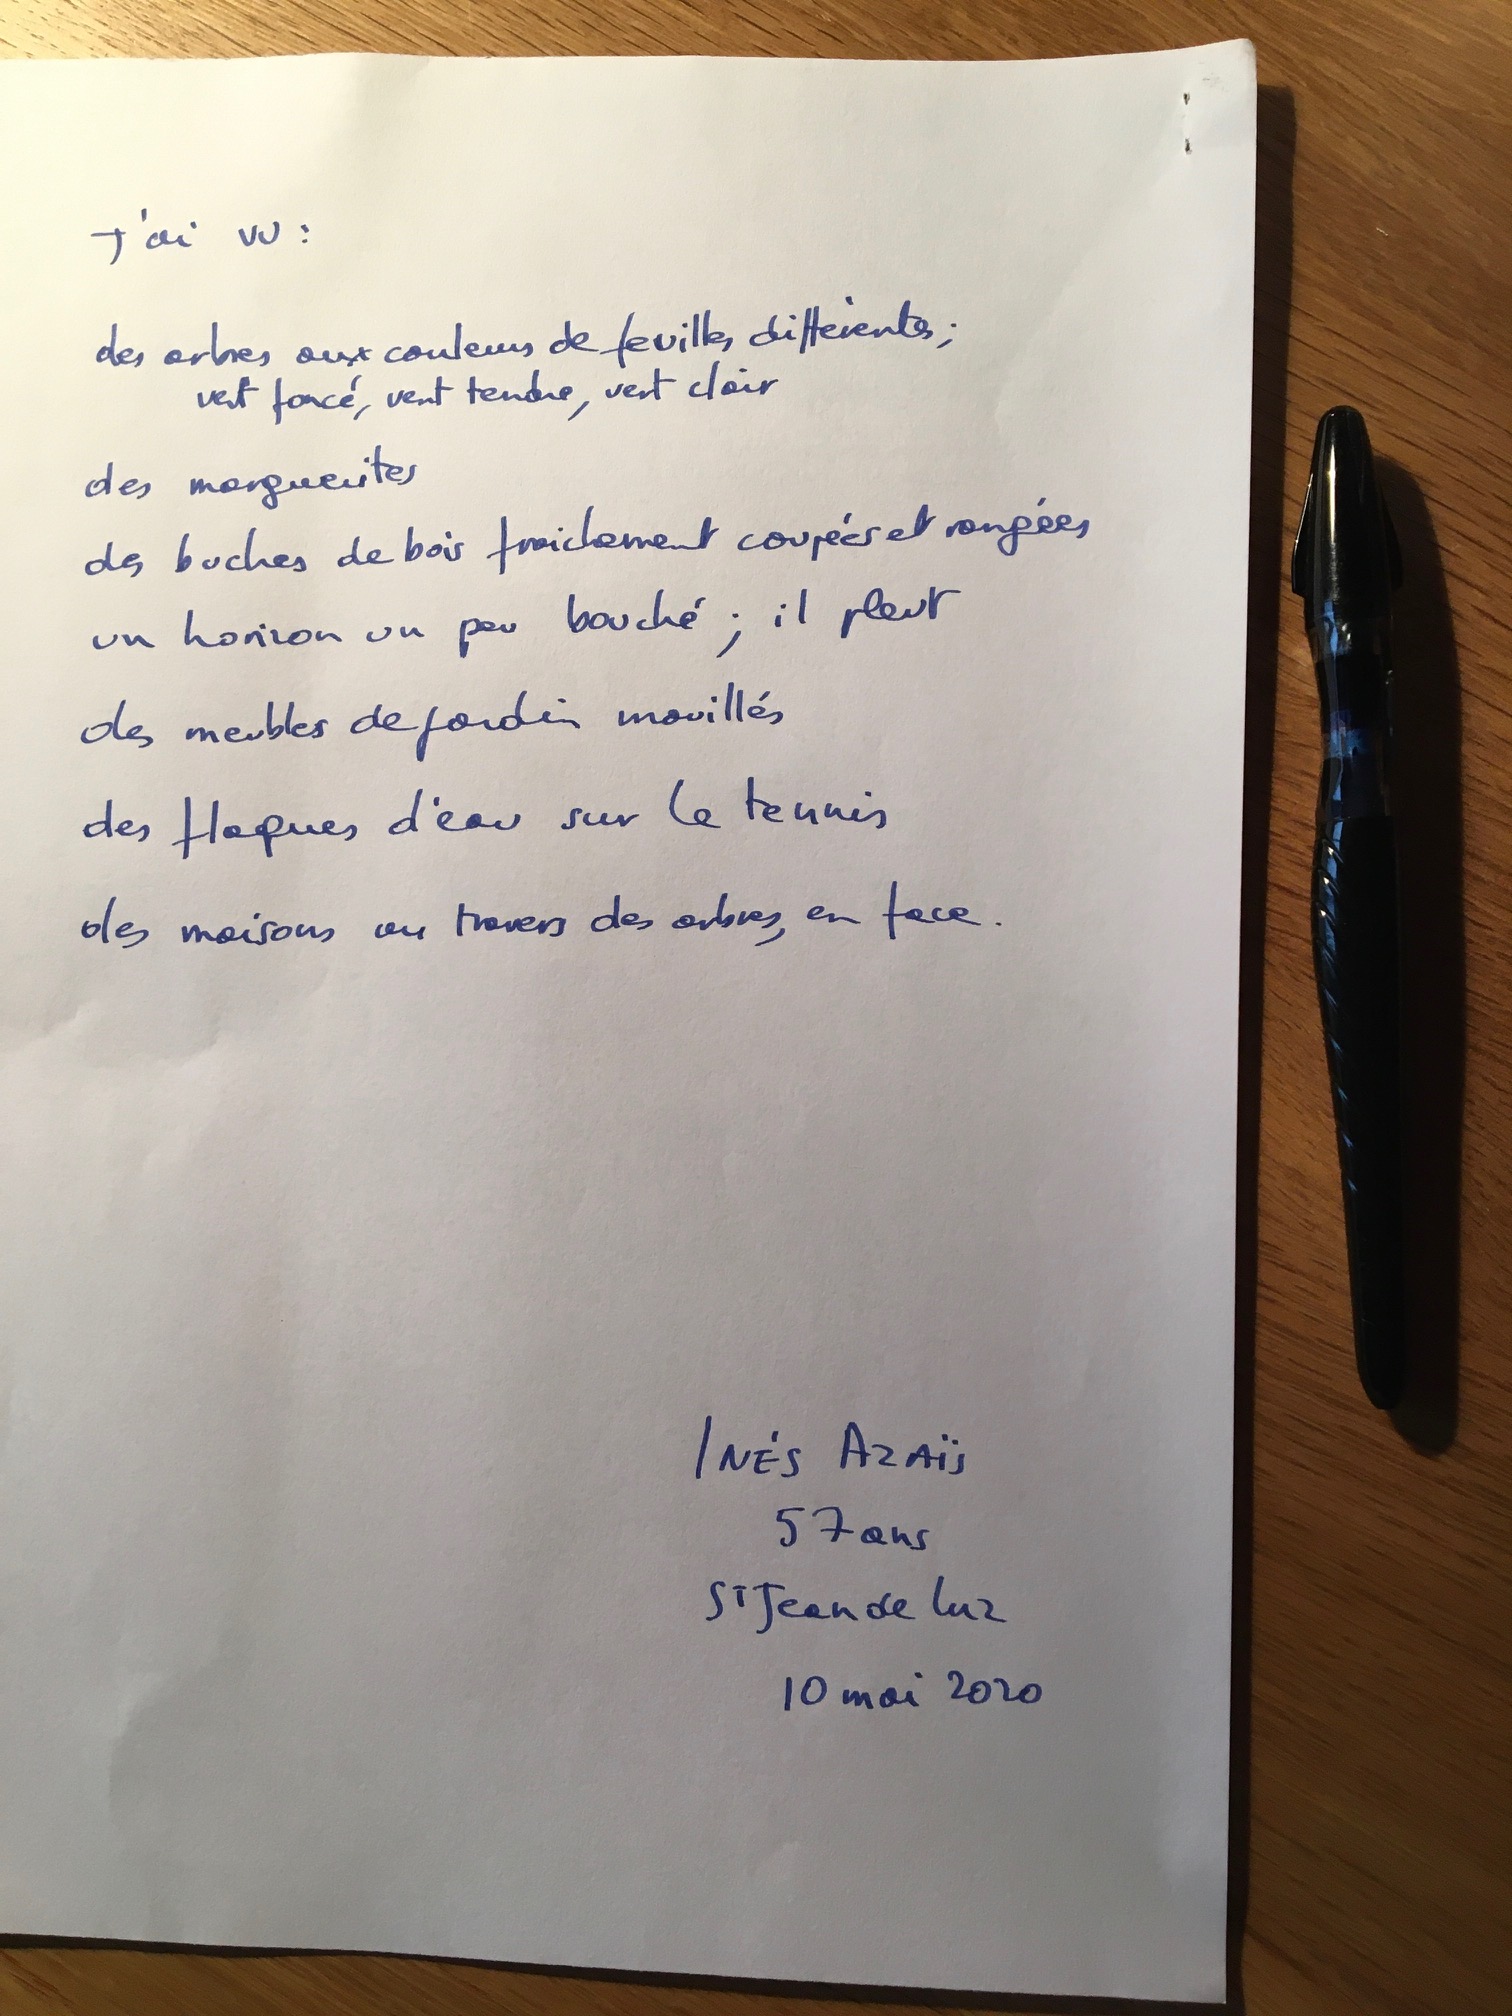 J'ai vu :
des arbres aux couleurs de feuilles différentes ;
vert foncé, vert tendre, vert clair
des marguerites
des buches de bois fraichement coupées et rangées
un horizon un peu bouché ; il pleut
des meubles de jardin mouillés
des flaques d'eau sur le tennis
des maisons au travers des arbres, en face.
INÉS AZAÏS
57 ans
ST Jean de Luz
10 mai 2020